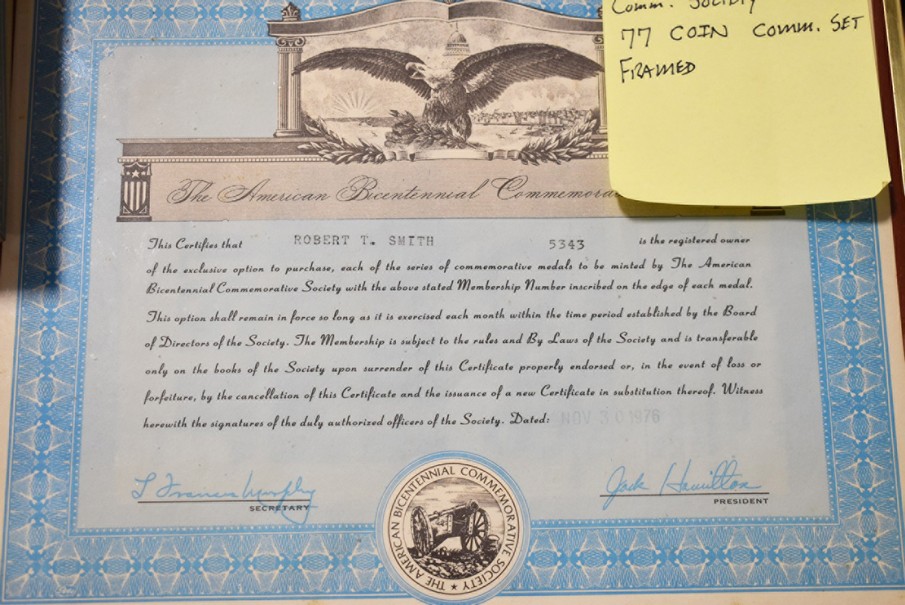 Comm. Society
77 COIN COMM. SET
FRAMED
The American Bicentennial Commemora
This Certifies that ROBERT T. SMITH 5343 is the registered owner
of the exclusive option to purchase, each of the series of commemorative medals to be minted by The American
Bicentennial Commemorative Society with the above stated Membership Number inscribed on the edge of each medal.
This option shall remain in force so long as it is exercised each month within the time period established by the Board
of Directors of the Society. The Membership is subject to the rules and By Laws of the Society and is transferable
only on the books of the Society upon surrender of this Certificate properly endorsed or, in the event of loss or
forfeiture, by the cancellation of this Certificate and the issuance of a new Certificate in substitution thereof. Witness
herewith the signatures of the duly authorized officers of the Society. Dated: NOV 30 1976
L Francis Murphy
SECRETARY
Jack Hamilton
PRESIDENT
THE AMERICAN BICENTENNIAL COMMEMORATIVE SOCIETY ★